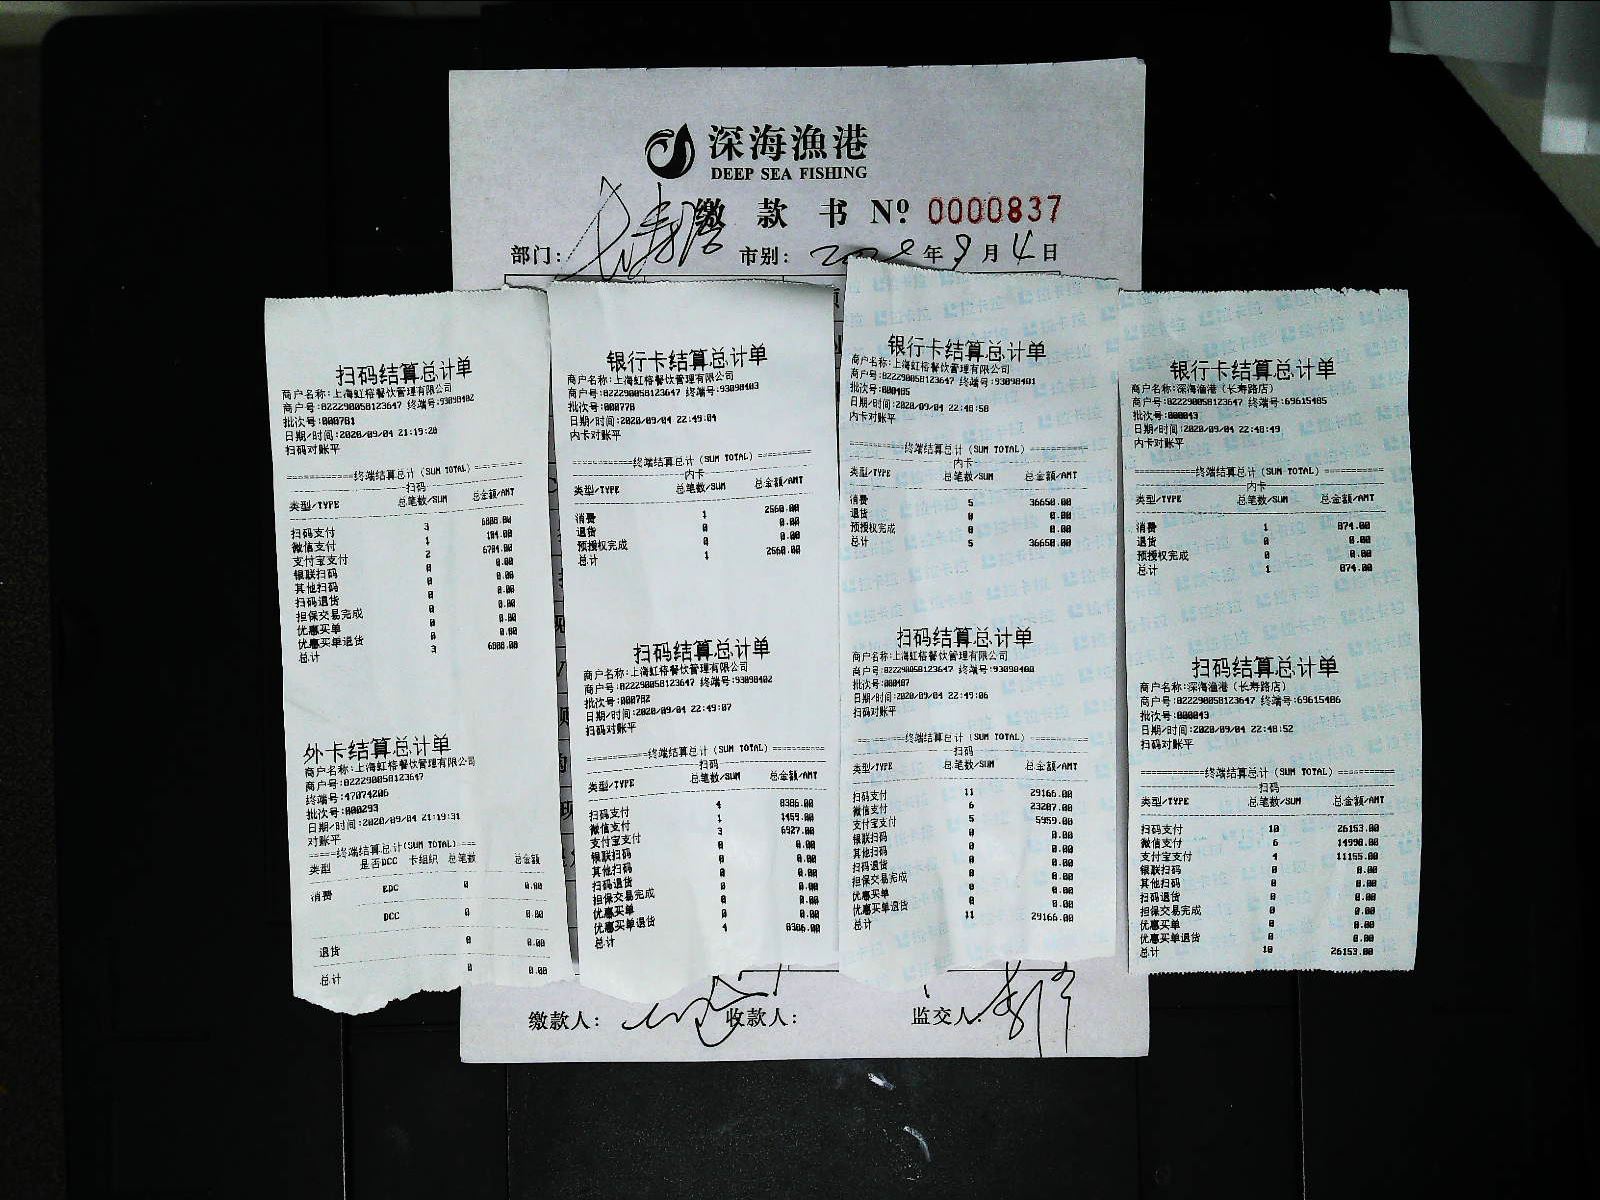 深海渔港
DEEP SEA FISHING
缴 款 书 Nº 0000837
部门: 长寿 市别: 2020 年 9 月 4 日
扫码结算总计单
商户名称:上海虹榕餐饮管理有限公司
商户号:822290058123647 终端号:93098402
批次号:000781
日期/时间:2020/09/04 21:19:28
扫码对账平
==========终端结算总计(SUM TOTAL)==========
扫码
类型/TYPE 总笔数/SUM 总金额/AMT
扫码支付 3 6888.00
微信支付 1 184.00
支付宝支付 2 6704.00
银联扫码 0 0.00
其他扫码 0 0.00
扫码退货 0 0.00
担保交易完成 0 0.00
优惠买单 0 0.00
优惠买单退货 0 0.00
总计 3 6888.00
外卡结算总计单
商户名称:上海虹榕餐饮管理有限公司
商户号:822290058123647
终端号:47074206
批次号:000293
日期/时间:2020/09/04 21:19:31
对账平
=====终端结算总计(SUM TOTAL)=====
类型 是否DCC 卡组织 总笔数 总金额
消费 EDC 0 0.00
DCC 0 0.00
退货 0 0.00
总计 0 0.00
银行卡结算总计单
商户名称:上海虹榕餐饮管理有限公司
商户号:822290058123647 终端号:93098403
批次号:000778
日期/时间:2020/09/04 22:49:04
内卡对账平
==========终端结算总计(SUM TOTAL)==========
内卡
类型/TYPE 总笔数/SUM 总金额/AMT
消费 1 2560.00
退货 0 0.00
预授权完成 0 0.00
总计 1 2560.00
扫码结算总计单
商户名称:上海虹榕餐饮管理有限公司
商户号:822290058123647 终端号:93098402
批次号:000782
日期/时间:2020/09/04 22:49:07
扫码对账平
==========终端结算总计(SUM TOTAL)==========
扫码
类型/TYPE 总笔数/SUM 总金额/AMT
扫码支付 4 8386.00
微信支付 1 1459.00
支付宝支付 3 6927.00
银联扫码 0 0.00
其他扫码 0 0.00
扫码退货 0 0.00
担保交易完成 0 0.00
优惠买单 0 0.00
优惠买单退货 0 0.00
总计 4 8386.00
银行卡结算总计单
商户名称:上海虹榕餐饮管理有限公司
商户号:822290058123647 终端号:93098401
批次号:000485
日期/时间:2020/09/04 22:48:58
内卡对账平
==========终端结算总计(SUM TOTAL)==========
内卡
类型/TYPE 总笔数/SUM 总金额/AMT
消费 5 36650.00
退货 0 0.00
预授权完成 0 0.00
总计 5 36650.00
扫码结算总计单
商户名称:上海虹榕餐饮管理有限公司
商户号:822290058123647 终端号:93098400
批次号:000487
日期/时间:2020/09/04 22:49:06
扫码对账平
==========终端结算总计(SUM TOTAL)==========
扫码
类型/TYPE 总笔数/SUM 总金额/AMT
扫码支付 11 29166.00
微信支付 6 23207.00
支付宝支付 5 5959.00
银联扫码 0 0.00
其他扫码 0 0.00
扫码退货 0 0.00
担保交易完成 0 0.00
优惠买单 0 0.00
优惠买单退货 0 0.00
总计 11 29166.00
银行卡结算总计单
商户名称:深海渔港(长寿路店)
商户号:822290058123647 终端号:69615485
批次号:000043
日期/时间:2020/09/04 22:48:49
内卡对账平
==========终端结算总计(SUM TOTAL)==========
内卡
类型/TYPE 总笔数/SUM 总金额/AMT
消费 1 874.00
退货 0 0.00
预授权完成 0 0.00
总计 1 874.00
扫码结算总计单
商户名称:深海渔港(长寿路店)
商户号:822290058123647 终端号:69615486
批次号:000043
日期/时间:2020/09/04 22:48:52
扫码对账平
==========终端结算总计(SUM TOTAL)==========
扫码
类型/TYPE 总笔数/SUM 总金额/AMT
扫码支付 10 26153.00
微信支付 6 14998.00
支付宝支付 4 11155.00
银联扫码 0 0.00
其他扫码 0 0.00
扫码退货 0 0.00
担保交易完成 0 0.00
优惠买单 0 0.00
优惠买单退货 0 0.00
总计 10 26153.00
缴款人: 收款人: 监交人: